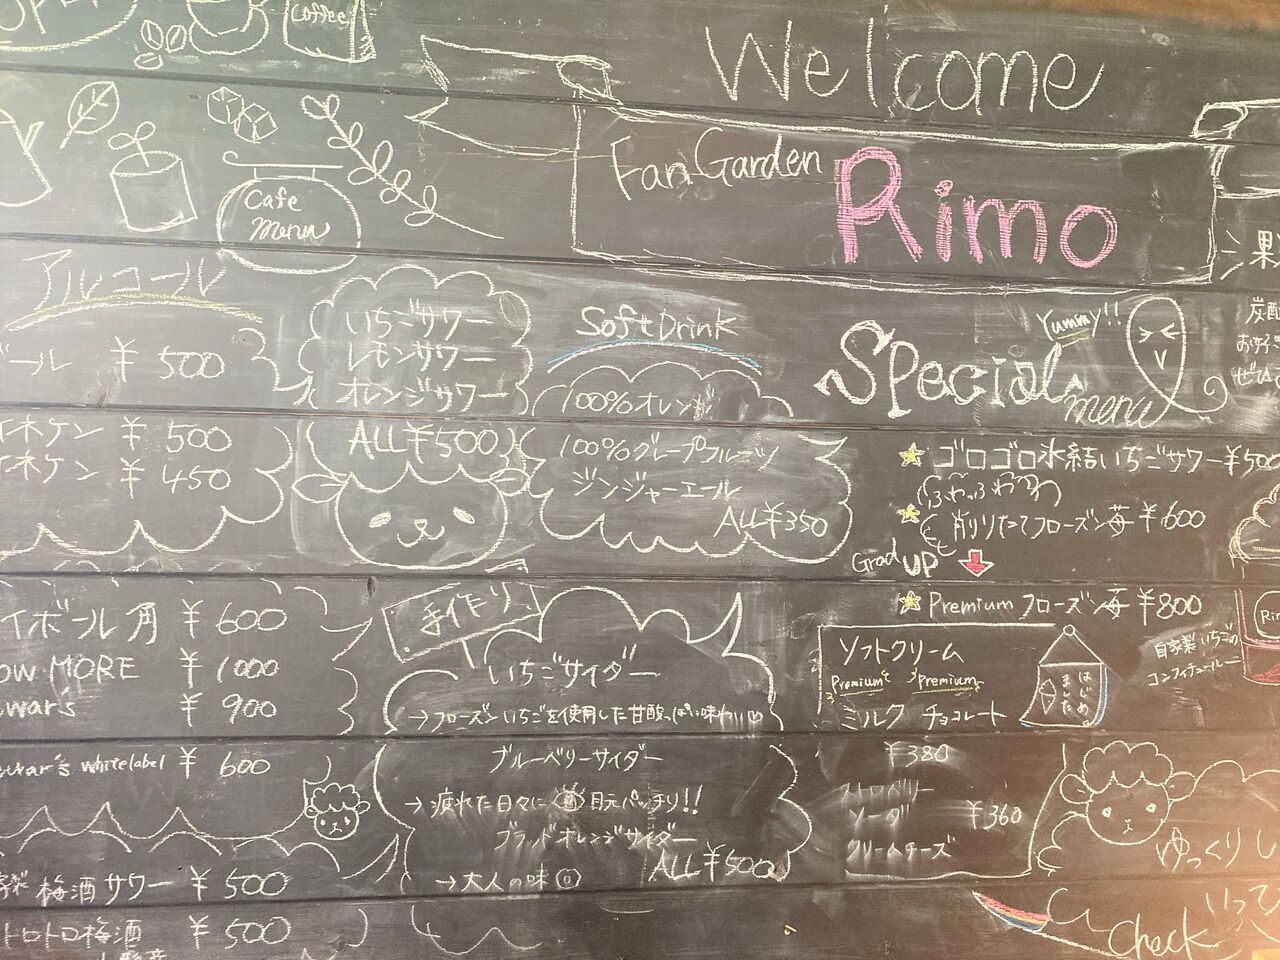 Coffee
Welcome
Fan Garden Rimo
Cafe
menu
アルコール
ール ¥500
ネケン ¥500
ネケン ¥450
イボール角 ¥600
OW MORE ¥1000
war's ¥900
war's white label ¥600
梅酒サワー ¥500
トロトロ梅酒 ¥500
いちごサワー
レモンサワー
オレンジサワー
ALL ¥500
Soft Drink
100%オレンジ
100%グレープフルーツ
ジンジャーエール
ALL ¥350
手作り
いちごサイダー
→フローズンいちごを使用した甘酸っぱい味わい♡
ブルーベリーサイダー
→疲れた日々に 目元パッチリ!!
ブラッドオレンジサイダー
→大人の味◎
ALL ¥500
Yummy!!
Special menu
★ゴロゴロ氷結いちごサワー ¥500
ふわっふわ
★削りたてフローズン苺 ¥600
Grad up
★Premium フローズン苺 ¥800
自家製いちごの
コンフィチュール
ソフトクリーム
Premium Premium
ミルク チョコレート
はじめ
ました
¥380
ストロベリー
ソーダ ¥360
クリームチーズ
果
炭酸
お好き
ぜひ
ゆっくりし
いっひ
Check